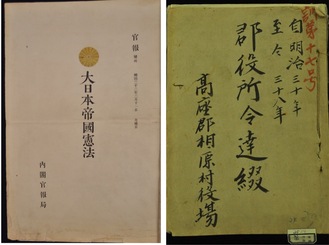 官報
大日本帝國憲法
内閣官報局
第十七号
自明治三十年
至仝三十八年
郡役所令達綴
高座郡相原村役場